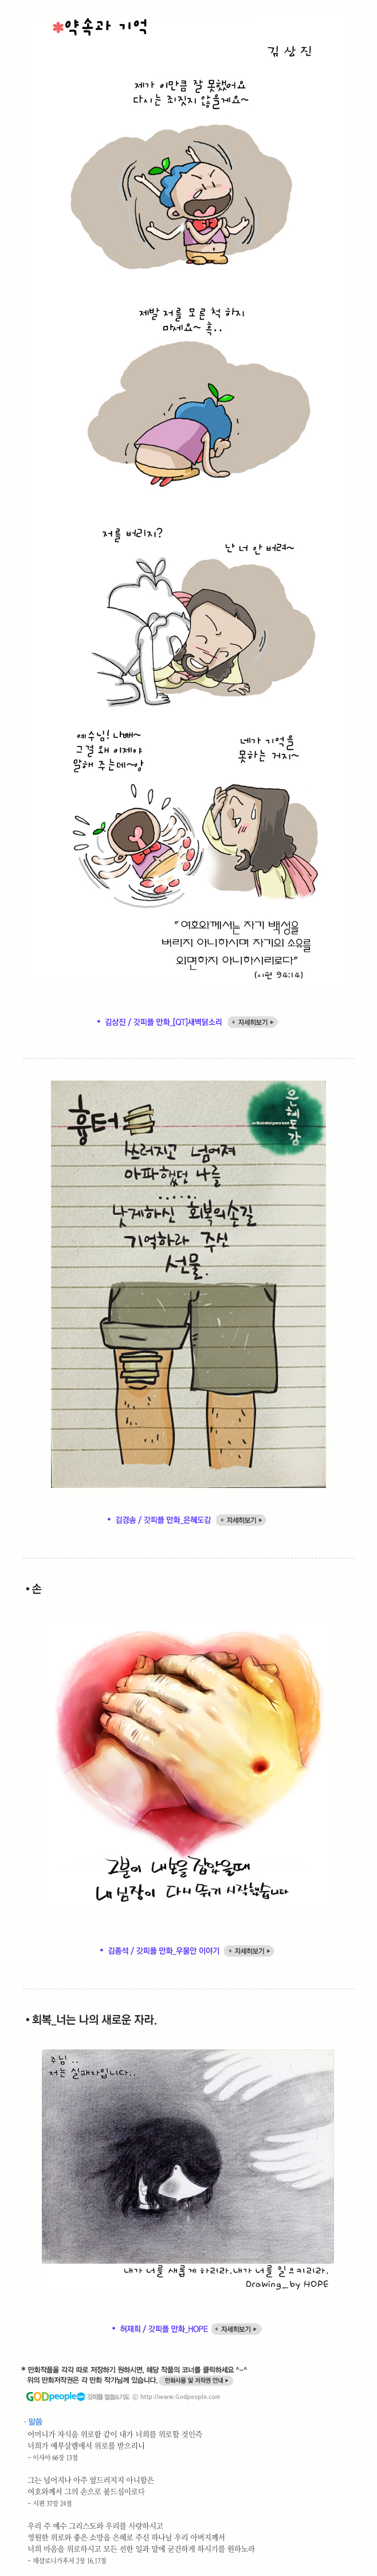 *약속과 기억
김 상 진
제가 이만큼 잘 못했어요
다시는 죄짓지 않을게요~
제발 저를 모른 척 하지
마세요~ 흑..
저를 버리지?
난 너 안 버려~
예수님! 나빠~
그걸 왜 이제야
말해 주는데~앙
네가 기억을
못하는 거지~
"여호와께서는 자기 백성을
버리지 아니하시며 자기의 소유를
외면하지 아니하시리로다"
(시편 94:14)
• 김상진 / 갓피플 만화_[QT]새벽닭소리 + 자세히보기 ▶
흉터
은혜도감
쓰러지고 넘어져
아파했던 나를
......
낫게하신 회복의손길
기억하라 주신
선물.
• 김경송 / 갓피플 만화_은혜도감 + 자세히보기 ▶
• 손
그분이 내손을 잡았을때
내 심장이 다시 뛰기 시작했습니다
• 김종석 / 갓피플 만화_우물안 이야기 + 자세히보기 ▶
• 회복_너는 나의 새로운 자라.
주님 ..
저는 실패자입니다..
내가 너를 새롭게 하리라.내가 너를 일으키리라.
Drawing_by HOPE
• 허재희 / 갓피플 만화_HOPE + 자세히보기 ▶
* 만화작품을 각각 따로 저장하기 원하시면, 해당 작품의 코너를 클릭하세요 ^-^
위의 만화저작권은 각 만화 작가님께 있습니다. 만화사용 및 저작권 안내 ▶
GODpeople.com 갓피플 말씀&기도 ⓒ http://www.Godpeople.com
· 말씀
어머니가 자식을 위로함 같이 내가 너희를 위로할 것인즉
너희가 예루살렘에서 위로를 받으리니
- 이사야 66장 13절
그는 넘어지나 아주 엎드러지지 아니함은
여호와께서 그의 손으로 붙드심이로다
- 시편 37장 24절
우리 주 예수 그리스도와 우리를 사랑하시고
영원한 위로와 좋은 소망을 은혜로 주신 하나님 우리 아버지께서
너희 마음을 위로하시고 모든 선한 일과 말에 굳건하게 하시기를 원하노라
- 데살로니가후서 2장 16,17절